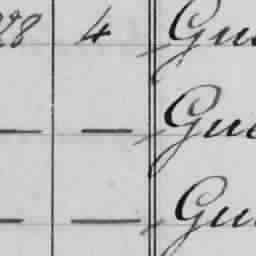 28 4 Gus
— — Gue
— — Gu